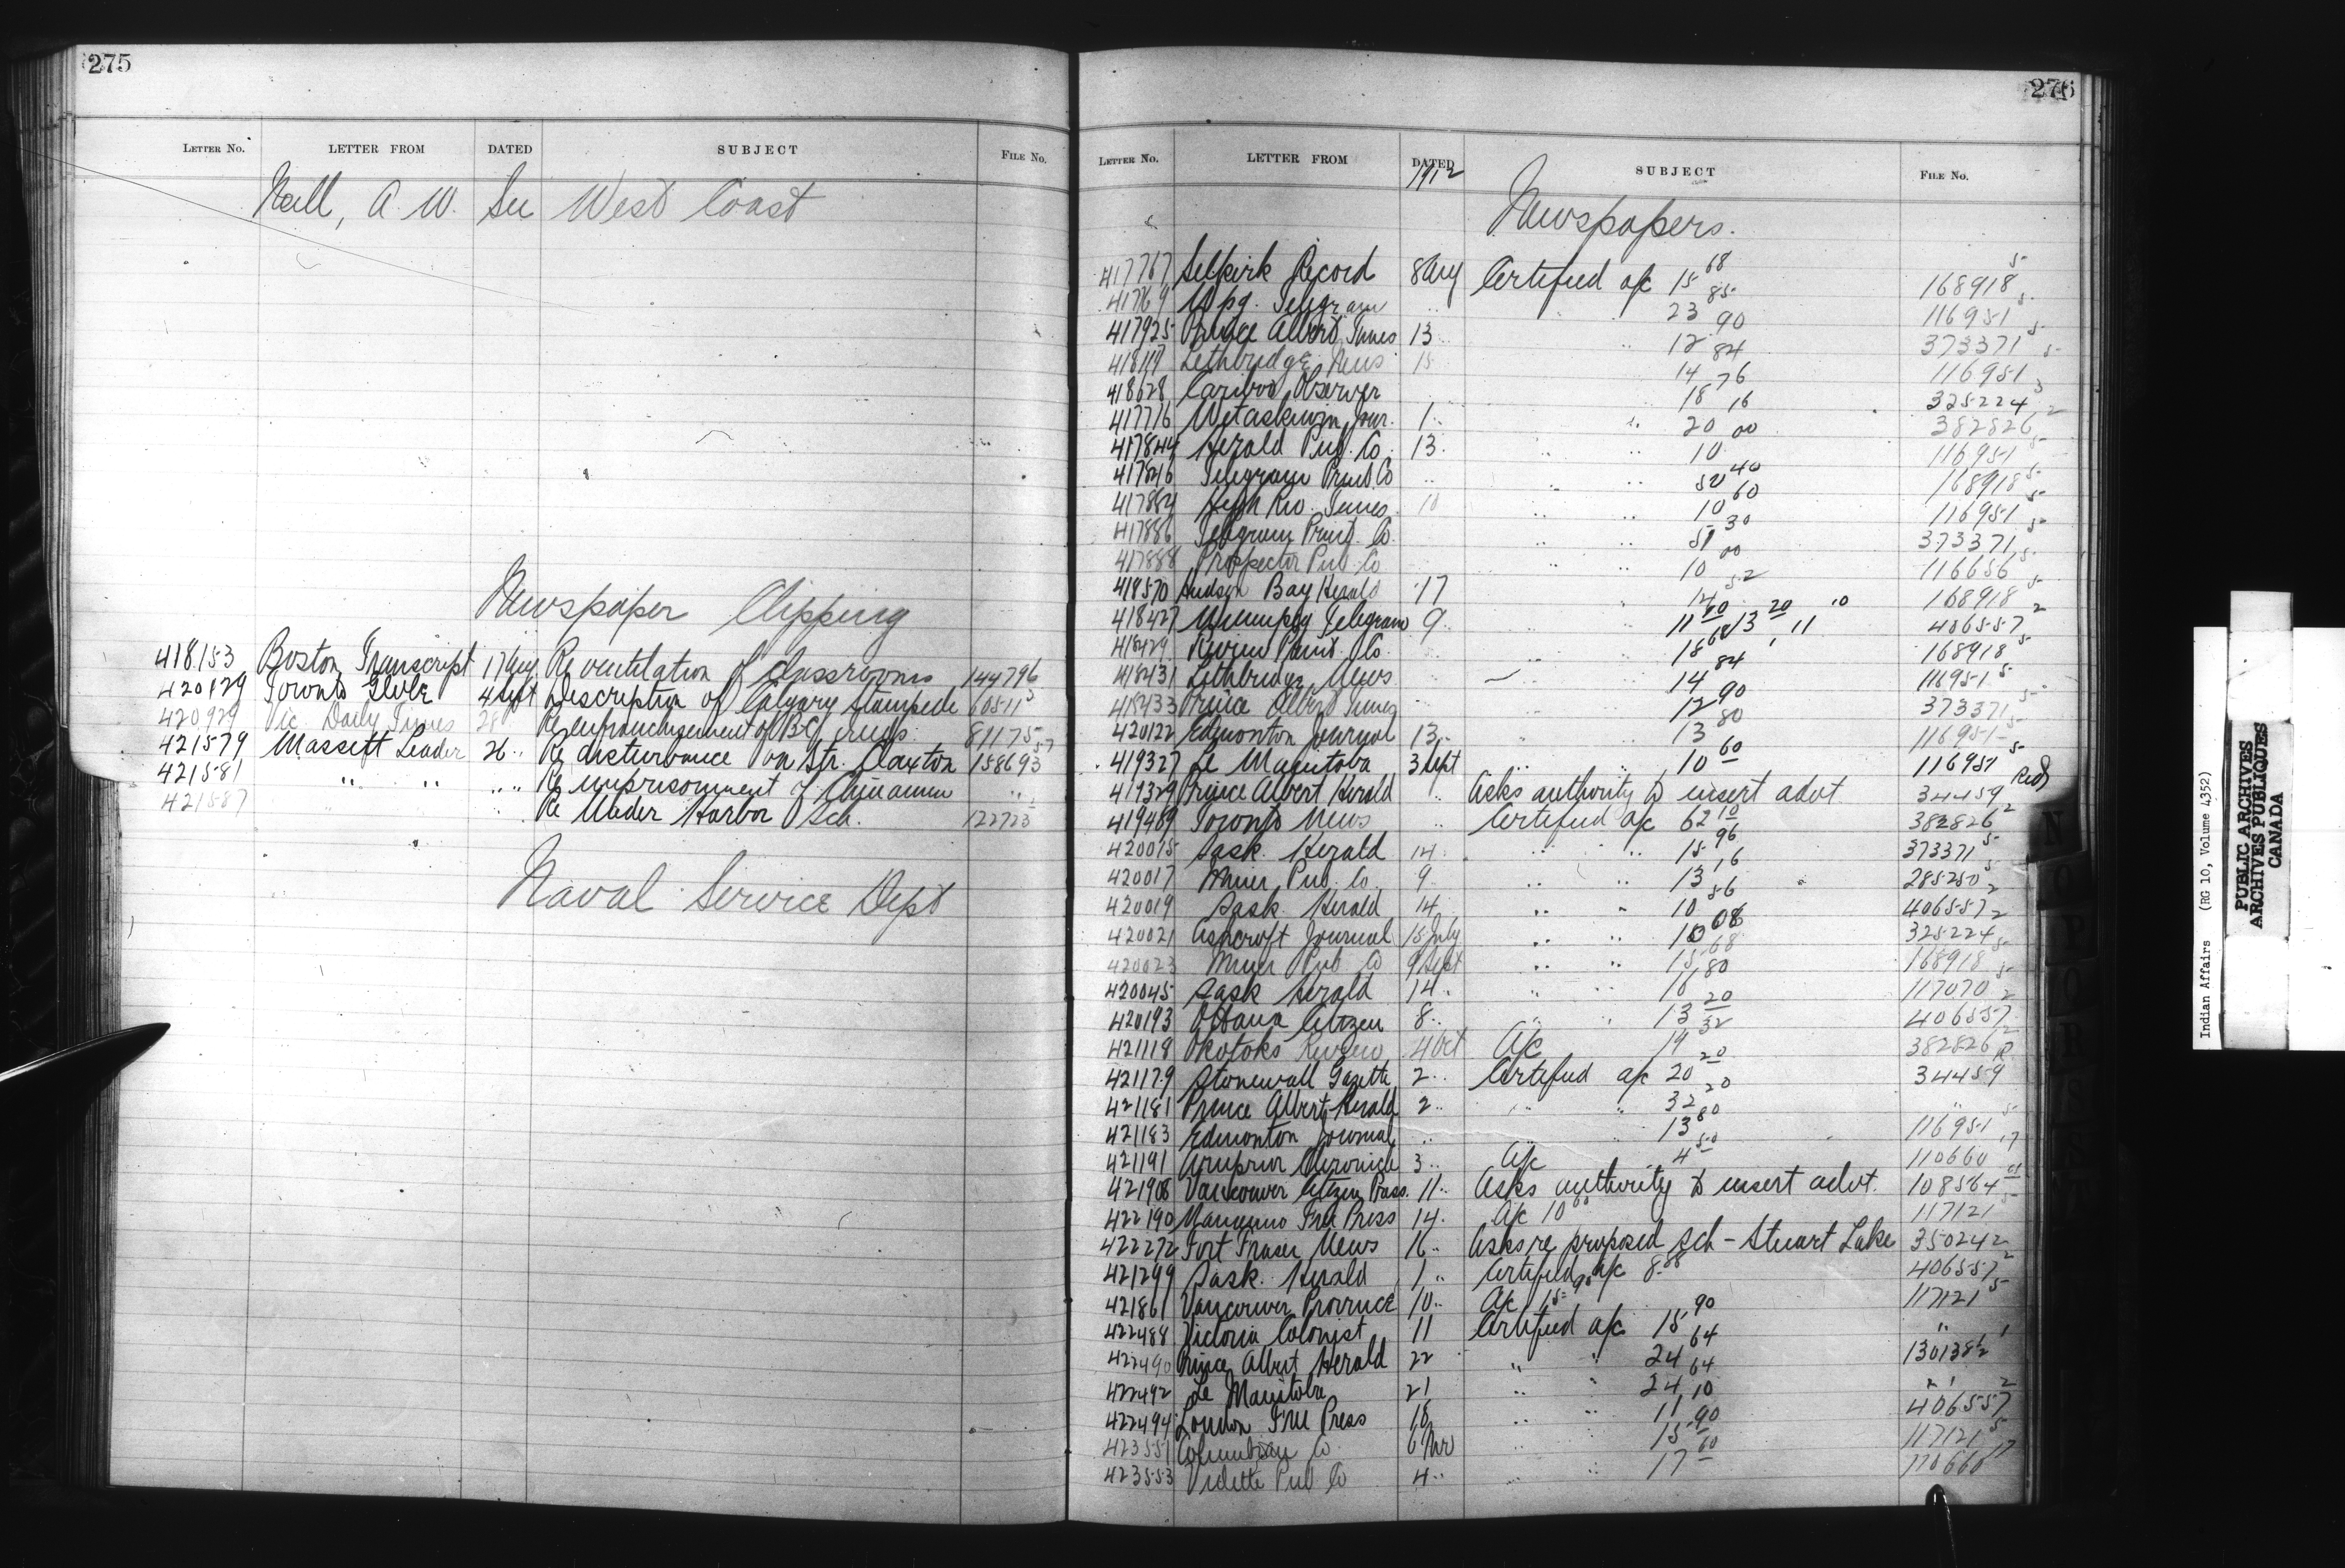 275
LETTER NO. LETTER FROM DATED SUBJECT FILE NO.
Neill, A. W. See West Coast
Newspaper Clipping
418153 Boston Transcript 17 Aug Re ventilation of classrooms 144796
420129 Toronto Globe 4 Sept Description of Calgary Stampede 60511
420929 Vic. Daily Times 28 Re enfranchisement of B.C. Inds. 81175
421579 Massett Leader 26 " Re disturbance on Str. Claxton 158693
421581 " " " " Re imprisonment of Chinamen "
421587 " " Re Sch. 122723
Naval Service Dept
276
LETTER NO. LETTER FROM DATED SUBJECT FILE NO.
1912
Newspapers.
417767 Selkirk Record 8 Aug Certified a/c 15 68 168918 5
41769 Wpg. Telegram " " 23 85 116951 5
417925 Prince Albert Times 13 " " 12 90 373371 5
Lethbridge News 15 " 14 84 116951 5
418628 Cariboo Observer " 18 76 325224 3
417716 Wetaskiwin Jour. 1 " " 20 16 382826 2
417844 Herald Pub. Co. 13 " " 10 00 116951 5
417846 Telegram Print Co " " " 52 40 168918 5
417884 High Riv. Times 10 " " 10 60 116951 5
417886 Telegram Print. Co. " " 51 30 373371 5
417888 Prospector Pub Co " " 10 00 116656 5
418570 Hudson Bay Herald 17 " 14 52 168918 5
418427 Winnipeg Telegram 9 " " 11 13 20 406557 2
418429 Print. Co. " " 15 68 168918 5
418431 Lethbridge News " 14 84 116951 5
418433 Prince Albert Times " " 12 90 373371 5
420122 Edmonton Journal 13 " " 13 80 116951 5
419327 Le Manitoba 3 Sept " " 10 60 116951 5
419329 Prince Albert Herald " Asks authority to insert advt. 34459 Red
419489 Toronto News " Certified a/c 62 10 382826 2
420015 Sask. Herald 14 " " 15 96 373371 5
420017 Pub. Co. 9 " " 13 16 285250 5
420019 Sask. Herald 14 " " 10 56 406557 2
420021 Ashcroft Journal 15 July " " 10 08 325224 2
420023 Pub Co 9 Sept " " 15 68 168918 5
420045 Sask Herald 14 " " " 16 80 117070 5
420193 Ottawa Citizen 8 " " " 13 20 406557 2
421118 Okotoks Review 4 Oct A/c 19 32 382826 2
421179 Stonewall Gazette 2 " Certified a/c 20 20 34459 R
421181 Prince Albert Herald 2 " " " 32 20 "
421183 Edmonton Journal " 13 80 116951 5
421191 Arnprior Chronicle 3 " A/c 4 50 110660 17
421908 Vancouver Citizen Press. 11 " Asks authority to insert advt. 108564
422190 Nanaimo Free Press 14 A/c 10 00 117121 5
422272 Fort Fraser News 16 " Asks re proposed sch - Stuart Lake 350242
421299 Sask. Herald 1 " Certified a/c 8.88 406557 2
421861 Vancouver Province 10 " A/c 15 90 117121 5
422488 Victoria Colonist 11 Certified a/c 15 90 "
422490 Prince Albert Herald 22 " " 24 64 130138
422492 Le Manitoba 21 " " 24 64 " "
422494 London Free Press 18 " " 11 10 406557 2
423551 Columbian Co. 6 Nov " " 15 90 117121 5
423553 Vidette Pub Co 4 " " " 17 60 110660 17
N
P
Q
R
S
Indian Affairs (RG 10, Volume 4352)
PUBLIC ARCHIVES
ARCHIVES PUBLIQUES
CANADA